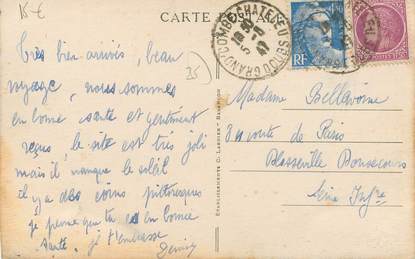 15 €
CARTE POSTALE
Très bien arrivés, beau
voyage, nous sommes
en bonne santé et gentiment
reçus, le site est très joli
mais il manque le soleil
il y a des coins pittoresques
je pense que tu es en bonne
santé. je t'embrasse
Denise
35
RF
Madame Bellavoine
route de Paris
Blosseville Bonsecours
Seine Infre
ETABLISSEMENTS C. LARDIER - BESANÇON